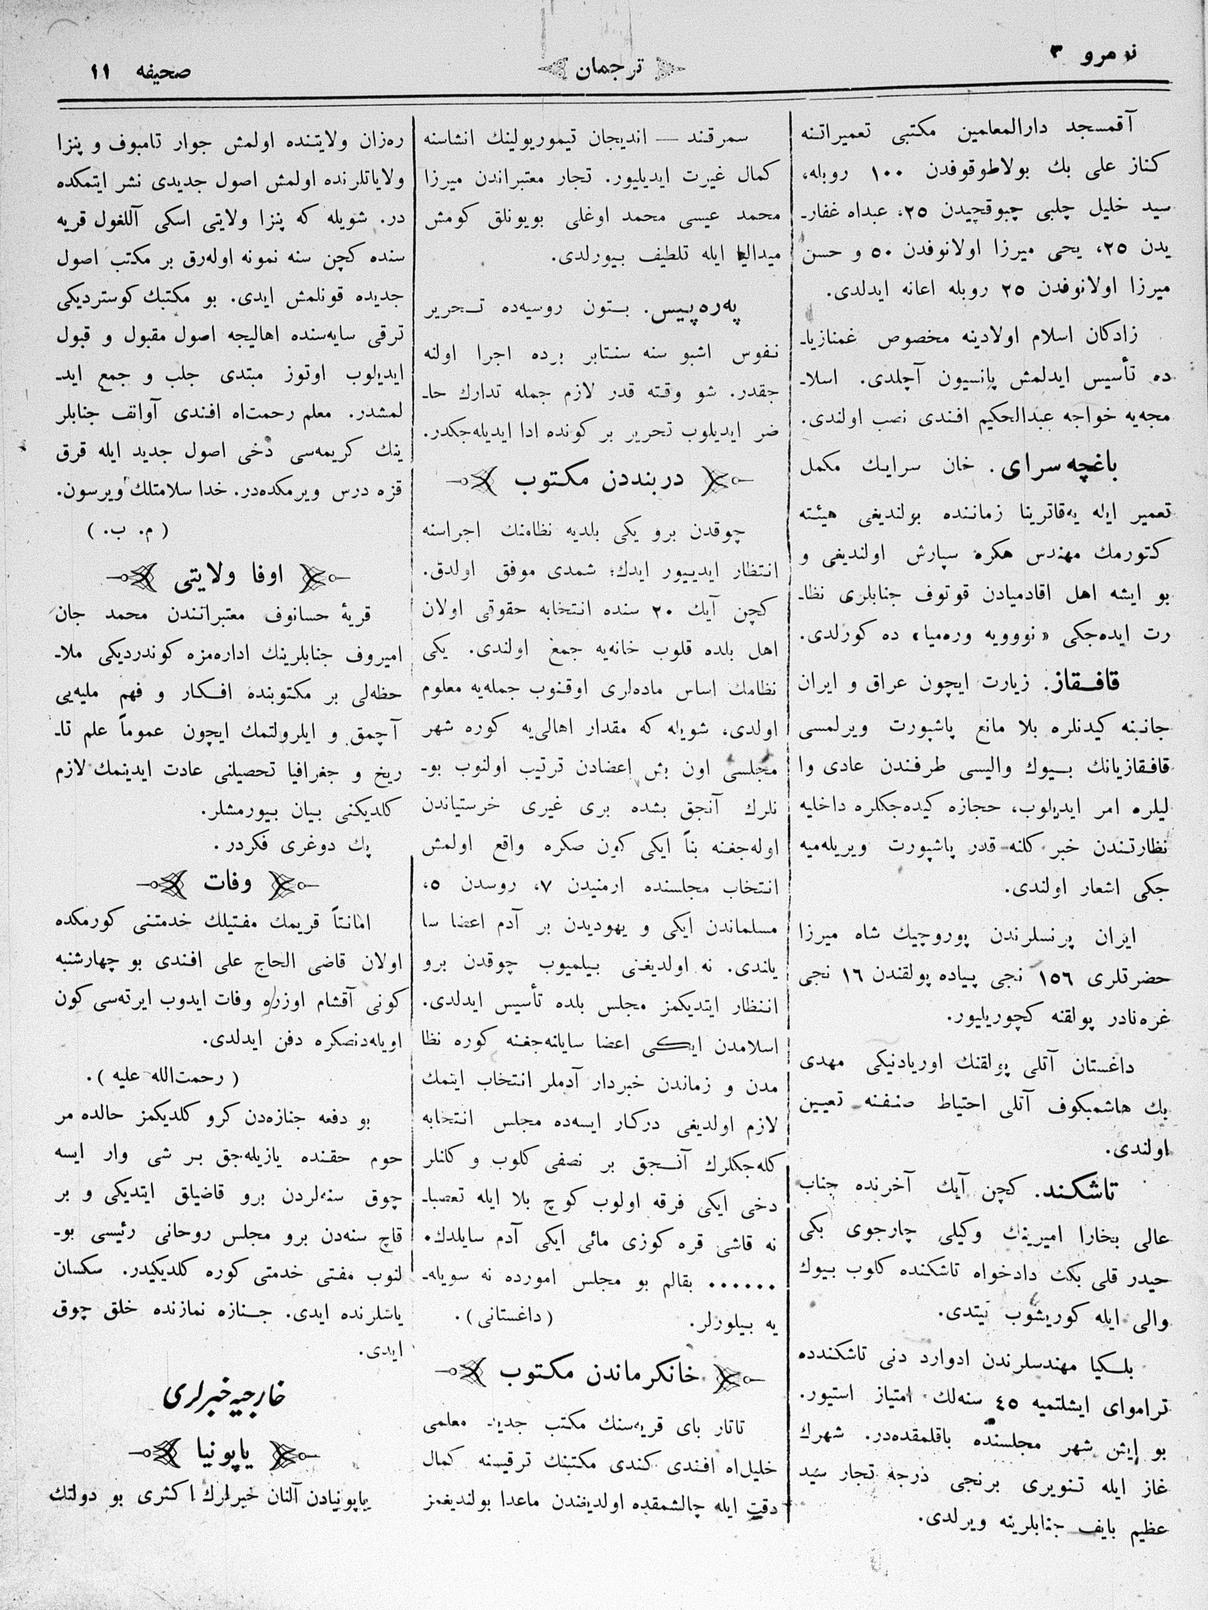 نومرو ٣
ترجمان
صحيفه ١١
آقمسجد دارالمعلمين مكتبى تعميراتنه
كناز على بك بولاطوقوفدن ١٠٠ روبله،
سيد خليل چلبى چبوقچيدن ٢٥، عبداه غفار
يدن ٢٥، يحى ميرزا اولانوفدن ٥٠ و حسن
ميرزا اولانوفدن ٢٥ روبله اعانه ايدلدى.
زادكان اسلام اولادينه مخصوص غمنازيا
ده تأسيس ايدلمش پانسيون آچلدى. اسلا
مجه‌يه خواجه عبدالحكيم افندى نصب اولندى.
باغچه سراى. خان سرايك مكمل
تعمير ايله يه‌قاترينا زماننده بولنديغى هيئته
كتورمك مهندس هكره سپارش اولنديغى و
بو ايشه اهل اقادميادن قوتوف جنابلرى نظا
رت ايده‌جكى «نوويه وره‌ميا» ده كورلدى.
قافقاز. زيارت ايچون عراق و ايران
جانبنه كيدنلره بلا مانع پاشپورت ويرلمسى
قافقازيانك بيوك واليسى طرفندن عادى وا
ليلره امر ايديلوب، حجازه كيده‌جكلره داخليه
نظارتندن خبر كلنه قدر پاشپورت ويريله‌ميه
جكى اشعار اولندى.
ايران پرنسلرندن پوروچيك شاه ميرزا
حضرتلرى ١٥٦ نجى پياده پولقندن ١٦ نجى
غره‌نادر پولقنه كچوريليور.
داغستان آتلى پولقنك اوريادنيكى مهدى
بك هاشمبكوف آتلى احتياط صنفنه تعيين
اولندى.
تاشكند. كچن آيك آخرنده جناب
عالى بخارا اميرينك وكيلى چارجوى بكى
حيدر قلى بكت دادخواه تاشكنده كلوب بيوك
والى ايله كوريشوب كيتدى.
بلكيا مهندسلرندن ادوارد دنى تاشكندده
تراموى ايشلتميه ٤٥ سنه‌لك امتياز استيور.
بو ايش شهر مجلسنده باقلمقده‌در. شهرك
غاز ايله تنويرى برنجى درجه تجار سيد
عظيم بايف جنابلرينه ويرلدى.
سمرقند — انديجان تيموريولينك انشاسنه
كمال غيرت ايديليور. تجار معتبراندن ميرزا
محمد عيسى محمد اوغلى بويونلق كومش
ميداليا ايله تلطيف بيورلدى.
په‌ره‌پيس. بتون روسيه‌ده تحرير
نفوس اشبو سنه سنتابر برده اجرا اولنه
جقدر. شو وقته قدر لازم جمله تدارك حا
ضر ايديلوب تحرير بر كونده ادا ايديله‌جكدر.
دربنددن مكتوب
چوقدن برو يكى بلديه نظامنك اجراسنه
انتظار ايدييور ايدك؛ شمدى موفق اولدق.
كچن آيك ٢٠ سنده انتخابه حقوقى اولان
اهل بلده قلوب خانه‌يه جمع اولندى. يكى
نظامك اساس ماده‌لرى اوقنوب جمله‌يه معلوم
اولدى، شويله كه مقدار اهالى‌يه كوره شهر
مجلسى اون بش اعضادن ترتيب اولنوب بو
نلرك آنجق بشده برى غيرى خرستياندن
اوله‌جغنه بناً ايكى كون صكره واقع اولمش
انتخاب مجلسنده ارمنيدن ٧، روسدن ٥،
مسلماندن ايكى و يهوديدن بر آدم اعضا سا
يلندى. نه اولديغنى بيلميوب چوقدن برو
انتظار ايتديكمز مجلس بلده تأسيس ايدلدى.
اسلامدن ايكى اعضا سايلنه‌جغنه كوره نظا
مدن و زماندن خبردار آدملر انتخاب ايتمك
لازم اولديغى دركار ايسه‌ده مجلس انتخابه
كله‌جكلرك آنجق بر نصفى كلوب و كلنلر
دخى ايكى فرقه اولوب كوچ بلا ايله تعصبا
نه قاشى قره كوزى مائى ايكى آدم سايلدك.
...... بقالم بو مجلس امورده نه سويله
يه بيلورلر. (داغستانى).
خانكرماندن مكتوب
تاتار باى قريه‌سنك مكتب جديد معلمى
خليل‌اه افندى كندى مكتبنك ترقيسنه كمال
دقت ايله چالشمقده اولديغندن ماعدا بولنديغمز
ره‌زان ولايتنده اولمش جوار تامبوف و پنزا
ولاياتلرنده اولمش اصول جديدى نشر ايتمكده
در. شويله كه پنزا ولايتى اسكى آللغول قريه
سنده كچن سنه نمونه اوله‌رق بر مكتب اصول
جديده قونلمش ايدى. بو مكتبك كوستردیكى
ترقى سايه‌سنده اهاليجه اصول مقبول و قبول
ايديلوب اوتوز مبتدى جلب و جمع ايد
لمشدر. معلم رحمت‌اه افندى آواتف جنابلر
ينك كريمه‌سى دخى اصول جديد ايله قرق
قزه درس ويرمكده‌در. خدا سلامتلك ويرسون.
(م. ب.)
اوفا ولايتى
قريهٔ حسانوف معتبراتندن محمد جان
اميروف جنابلرينك اداره‌مزه كوندرديكى ملا
حظه‌لى بر مكتوبنده افكار و فهم مليه‌يى
آچمق و ايلرولتمك ايچون عموماً علم تا
ريخ و جغرافيا تحصيلنى عادت ايدينمك لازم
كلديكنى بيان بيورمشلر.
پك دوغرى فكردر.
وفات
امانتاً قريمك مفتيلك خدمتنى كورمكده
اولان قاضى الحاج على افندى بو چهارشنبه
كونى آقشام اوزره وفات ايدوب ايرته‌سى كون
اويله‌دنصكره دفن ايدلدى.
(رحمت‌الله عليه).
بو دفعه جنازه‌دن كرو كلديكمز حالده مر
حوم حقنده يازيله‌جق بر شى وار ايسه
چوق سنه‌لردن برو قاضيلق ايتديكى و بر
قاچ سنه‌دن برو مجلس روحانى رئيسى بو
لنوب مفتى خدمتى كوره كلديكيدر. سكسان
ياشلرنده ايدى. جنازه نمازنده خلق چوق
ايدى.
خارجيه خبرلرى
ياپونيا
ياپونيادن آلنان خبرلرك اكثرى بو دولتك